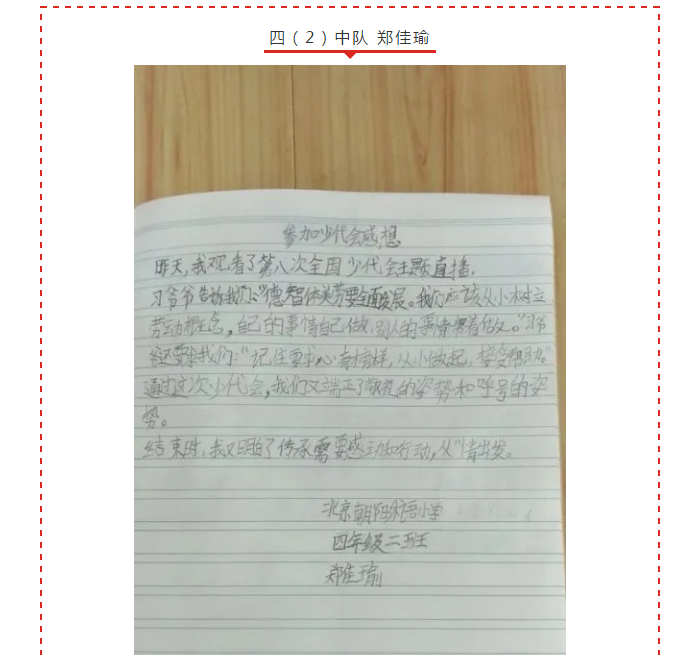 四（2）中队 郑佳瑜
参加少代会感想
昨天,我观看了第八次全国少代会主题直播.
习爷爷告诉我们:"德智体美劳要全面发展。我们应该从小树立
劳动概念，自己的事情自己做，别人的事情帮着做。"习爷
爷还要求我们:"记住要求，心有榜样，从小做起，接受帮助。"
通过这次少代会,我们又端正了敬礼的姿势和呼号的姿
势。
结束时,我又明白了传承需要感动和行动,从"情出发。
北京朝阳外语小学
四年级二班
郑佳瑜